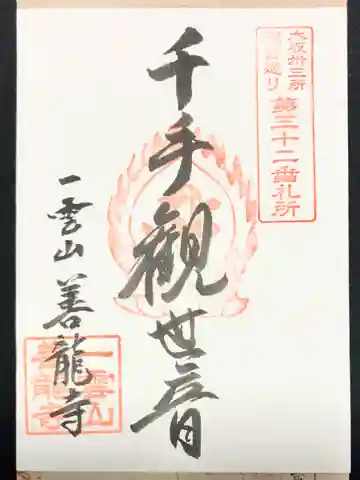 大坂卅三所
観音廻り
第三十二番札所
千手觀世音
一雲山善龍寺
一雲山
善龍寺